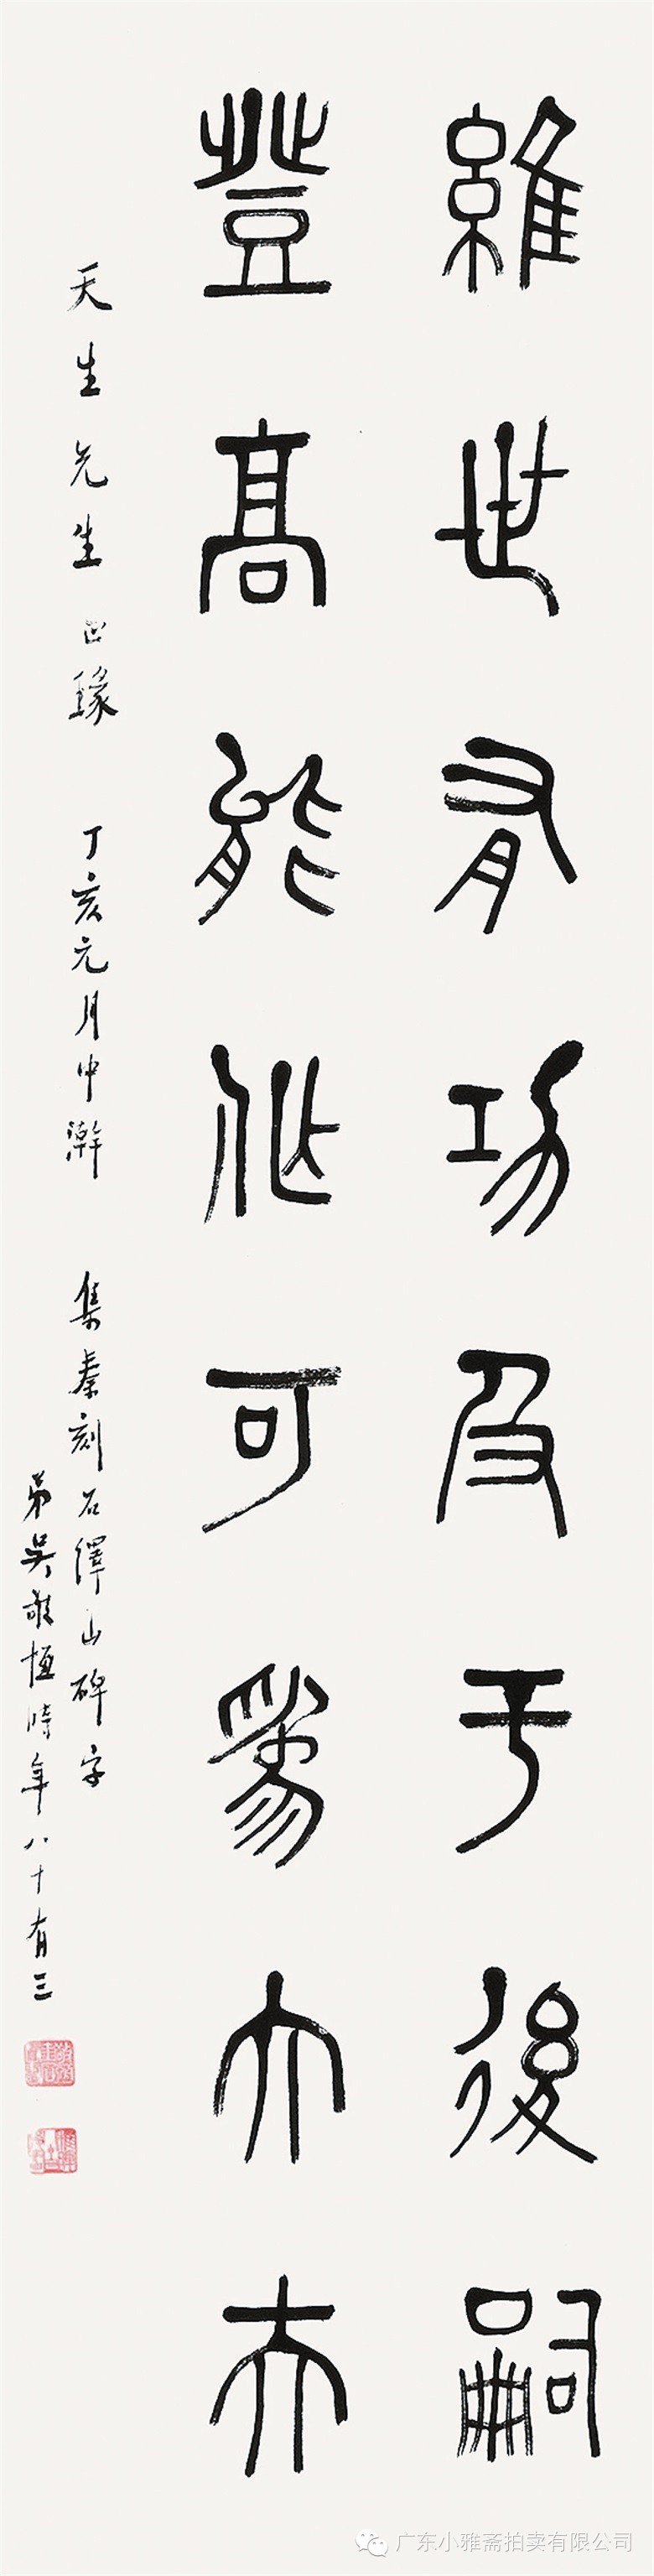 維世有功及于後嗣
登高能作可為大夫
天生先生 丁亥元月中澣 集秦刻石繹山碑字
弟吳敬恆時年八十有三
广东小雅斋拍卖有限公司